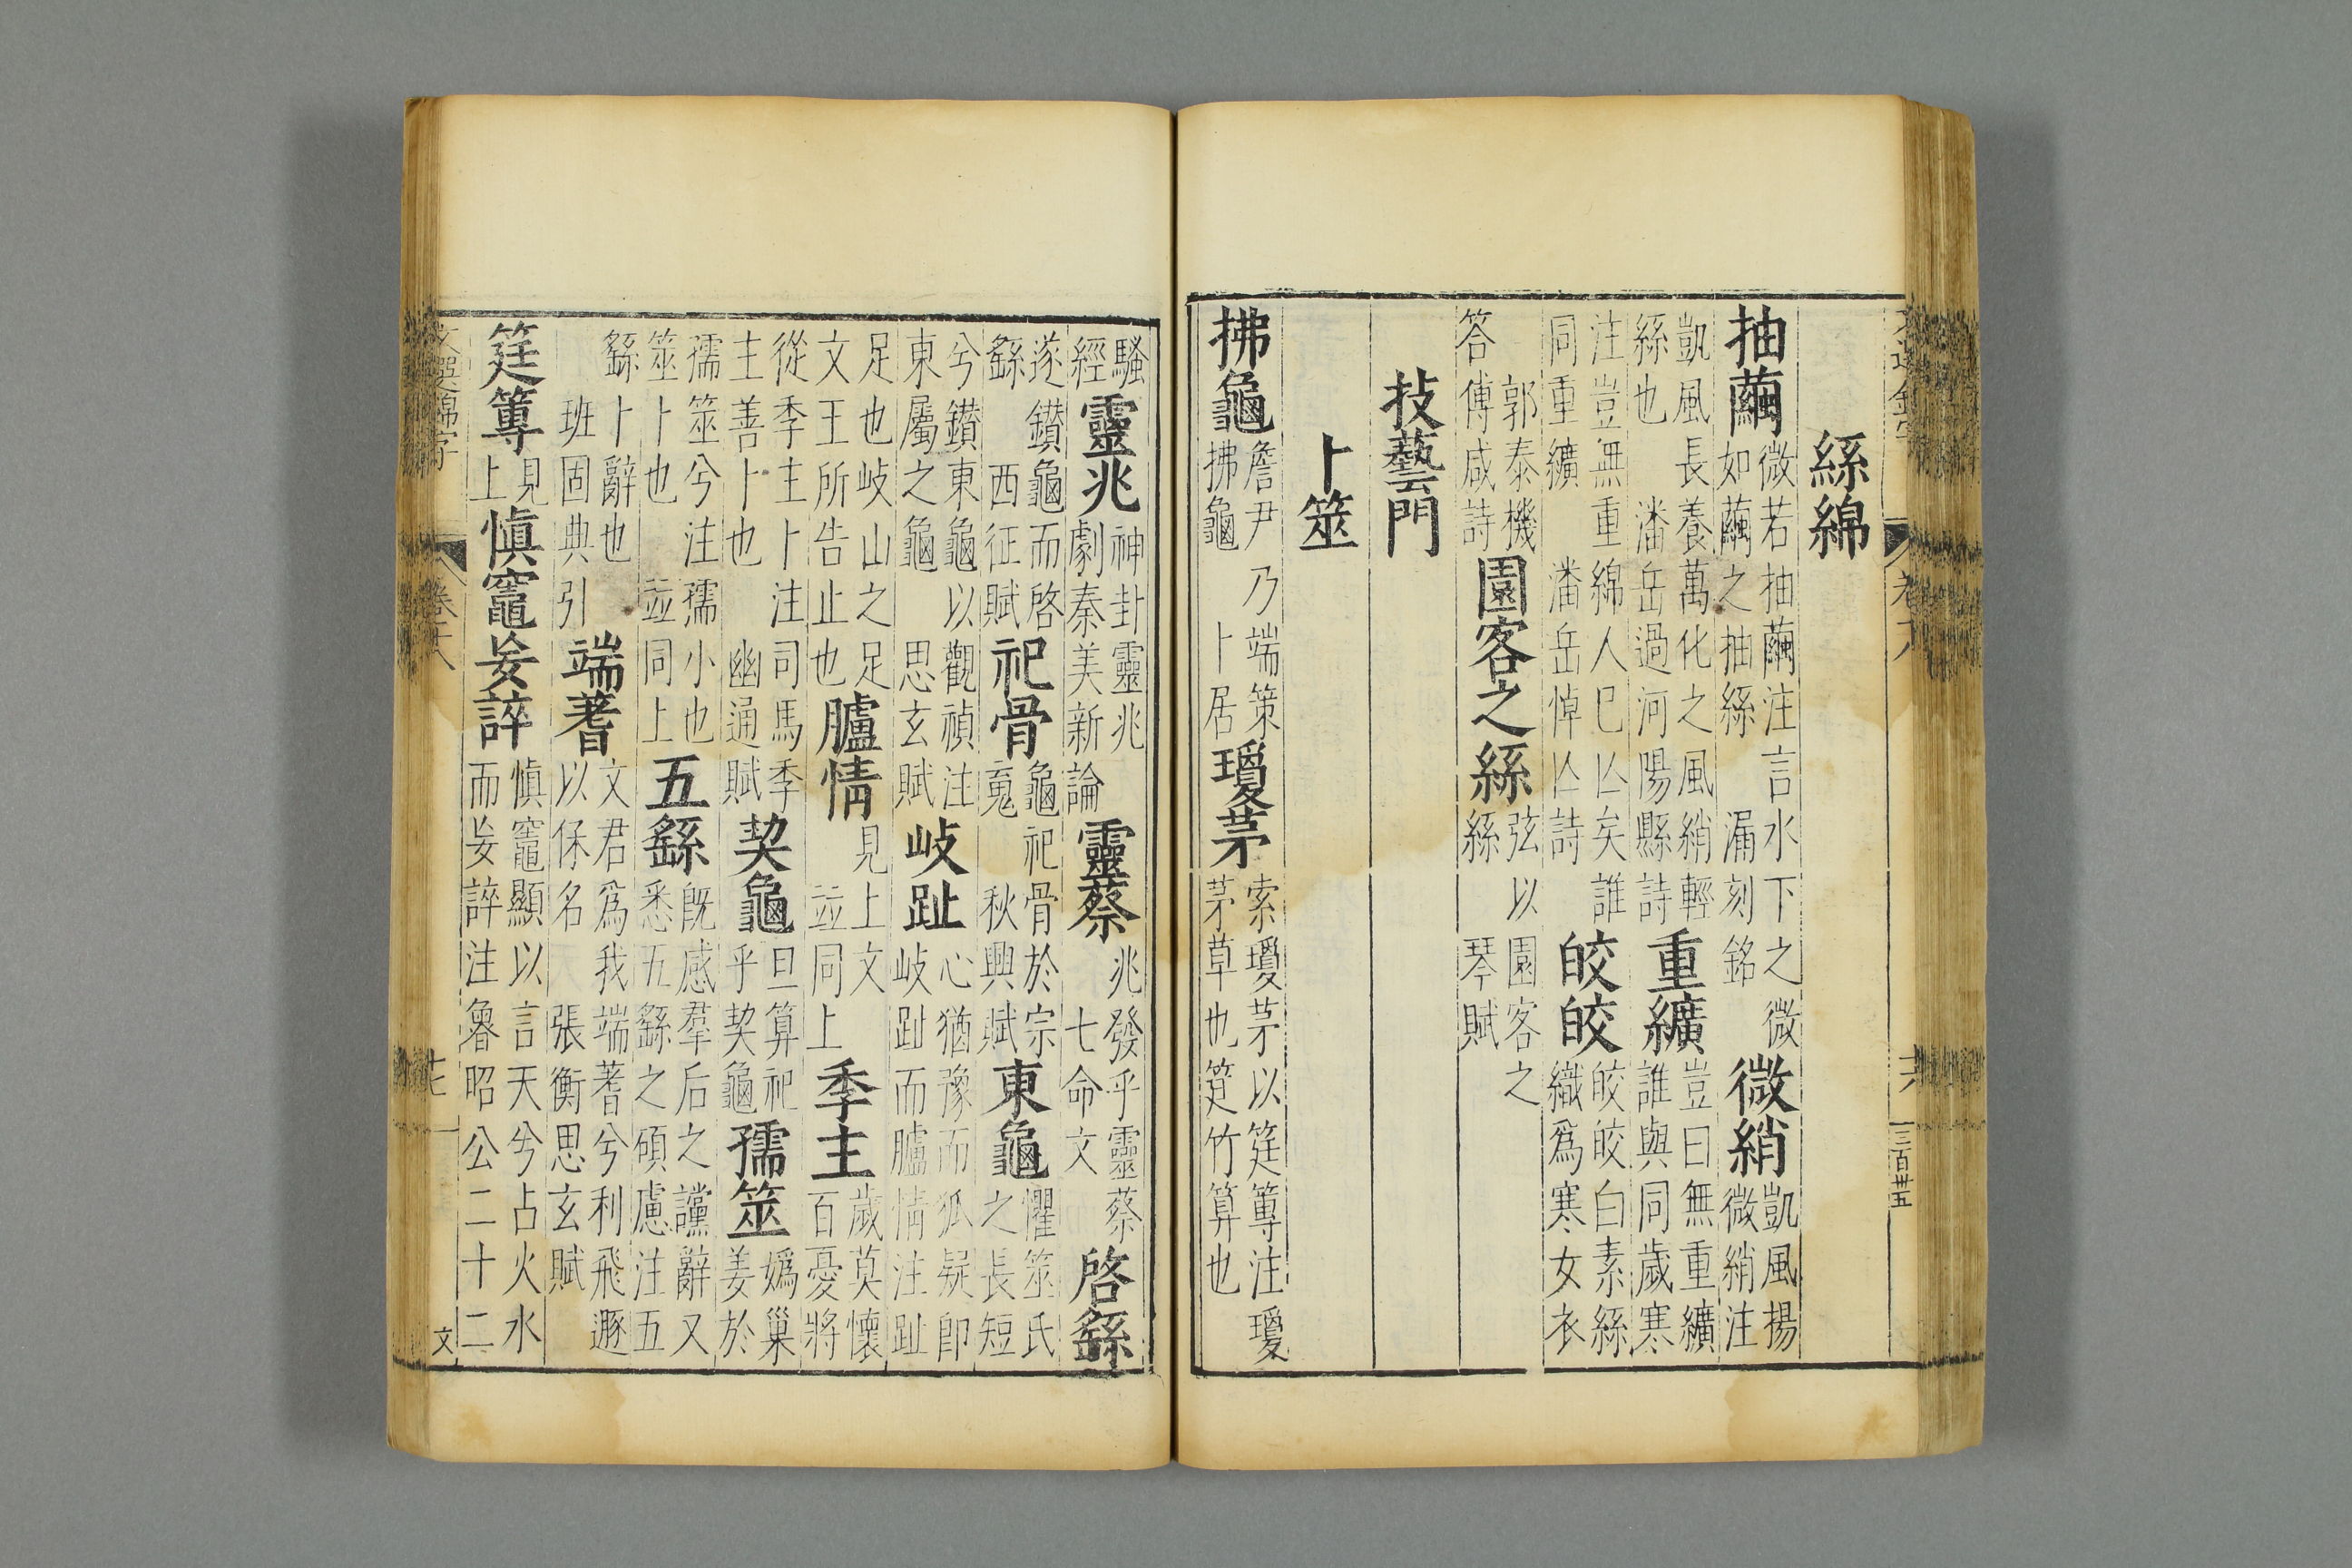 絲綿
抽繭微若抽繭注言水下之微
如繭之抽絲　漏刻銘
微綃凱風揚
微綃注
凱風長養萬化之風綃輕
絲也　潘岳過河陽縣詩
重纊豈曰無重纊
誰與同歲寒
注豈無重綿人已亾矣誰
同重纊　潘岳悼亾詩
皎皎皎皎白素絲
織爲寒女衣
郭泰機
答傅咸詩
園客之絲弦以園客之
絲　琴賦
技藝門
卜筮
拂龜詹尹乃端策
拂龜　卜居
瓊茅索瓊茅以筳篿注瓊
茅草也筳竹算也
騷
經
靈兆神卦靈兆
劇秦美新論
靈蔡兆發乎靈蔡
七命文
啓繇
遂鑚龜而啓
繇　西征賦
祀骨龜祀骨於宗
秋興賦
東龜懼筮氏
之長短
兮鑚東龜以觀禎注
東屬之龜　思玄賦
岐趾心猶豫而狐疑卽
岐趾而臚情注趾
足也岐山之足
文王所告止也
臚情見上文
並同上
季主歲莫懷
百憂將
從季主卜注司馬季
主善卜也　幽通賦
契龜旦算祀
乎契龜
孺筮嬀巢
姜於
孺筮兮注孺小也
筮卜也　並同上
五繇旣感羣后之讜辭又
悉五繇之碩慮注五
繇卜辭也
班固典引
端蓍文君爲我端蓍兮利飛遯
以保名　張衡思玄賦
筳篿見
上
愼竈妄誶愼竈顯以言天兮占火水
而妄誶注魯昭公二十二
文選錦字　卷十八　十七　文